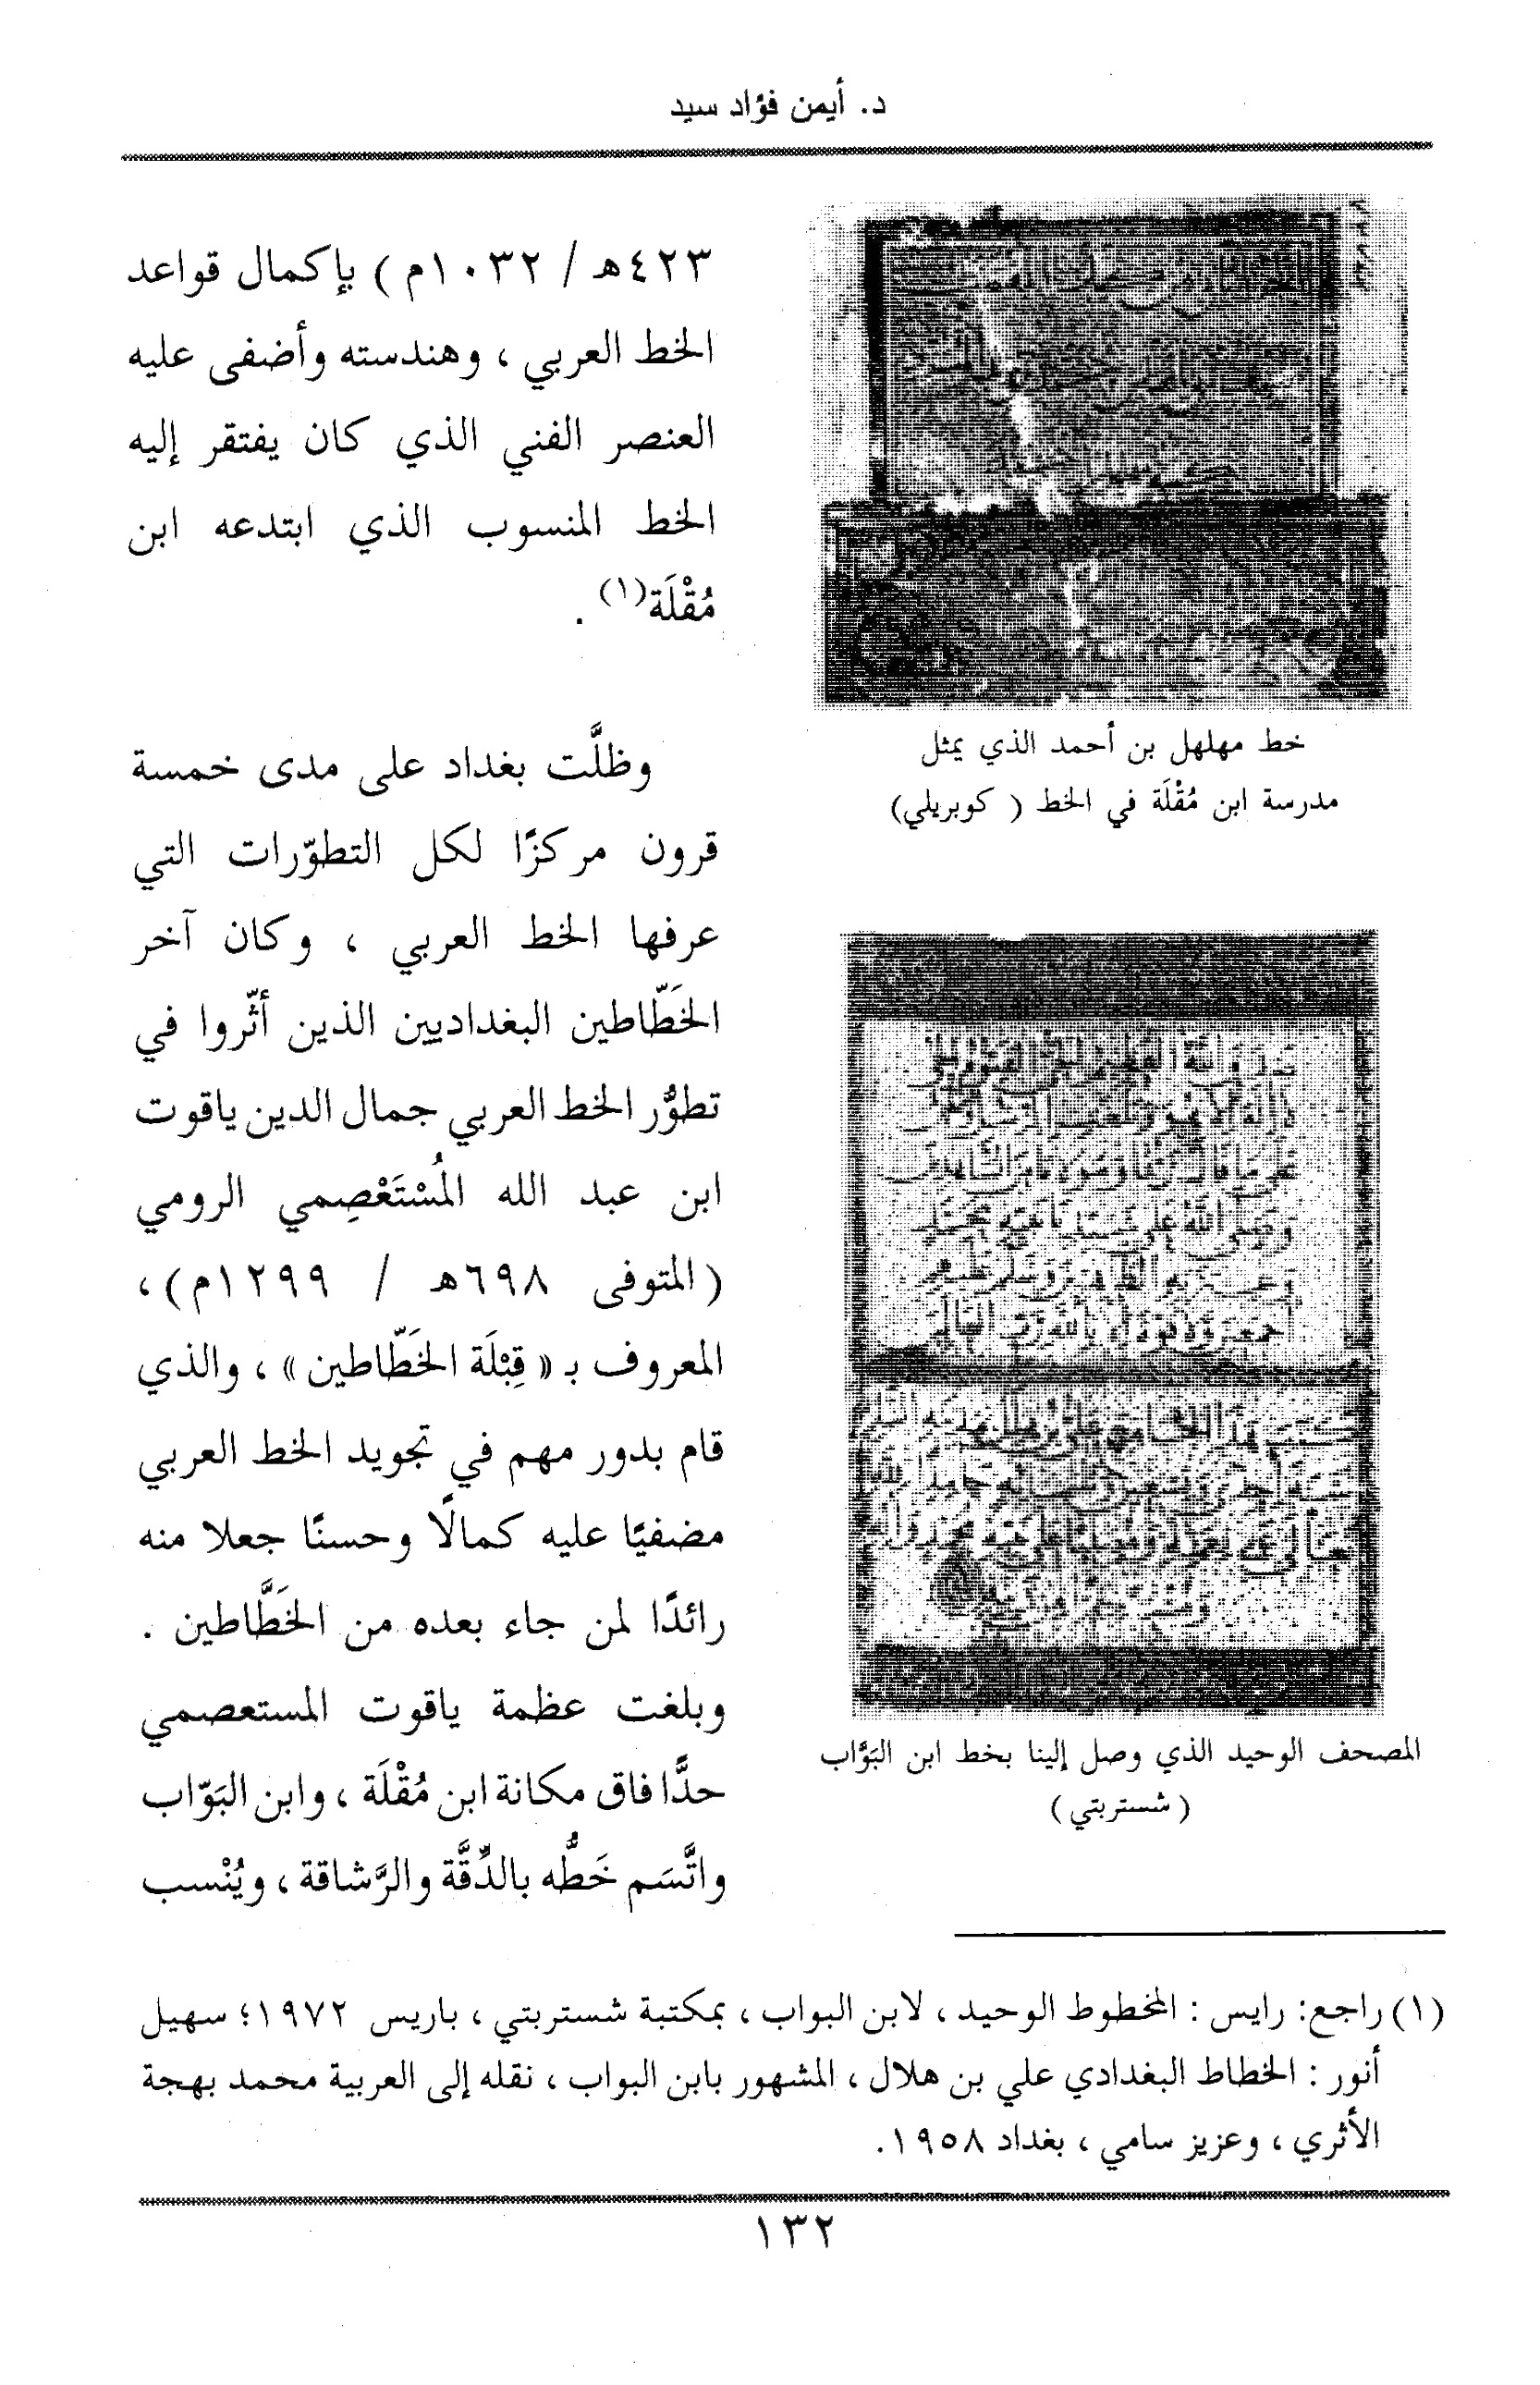 د. أيمن فؤاد سيد
٤٢٣هـ / ١٠٣٢م ) بإكمال قواعد
الخط العربي ، وهندسته وأضفى عليه
العنصر الفني الذي كان يفتقر إليه
الخط المنسوب الذي ابتدعه ابن
مُقْلَة(١) .
وظلَّت بغداد على مدى خمسة
قرون مركزًا لكل التطوّرات التي
عرفها الخط العربي ، وكان آخر
الخَطّاطين البغداديين الذين أثّروا في
تطوُّر الخط العربي جمال الدين ياقوت
ابن عبد الله المُسْتَعْصِمي الرومي
(المتوفى ٦٩٨هـ / ١٢٩٩م)،
المعروف بـ « قِبْلَة الخَطّاطين» ، والذي
قام بدور مهم في تجويد الخط العربي
مضفيًا عليه كمالًا وحسنًا جعلا منه
رائدًا لمن جاء بعده من الخَطَّاطين .
وبلغت عظمة ياقوت المستعصمي
حدًّا فاق مكانة ابن مُقْلَة ، وابن البَوّاب
واتَّسَم خَطُّه بالدِّقَّة والرَّشاقة ، ويُنْسب
خط مهلهل بن أحمد الذي يمثل
مدرسة ابن مُقْلَة في الخط ( كوبريلي)
المصحف الوحيد الذي وصل إلينا بخط ابن البَوَّاب
( شستربتي )
(١) راجع: رايس : المخطوط الوحيد ، لابن البواب ، بمكتبة شستربتي ، باريس ١٩٧٢؛ سهيل
أنور : الخطاط البغدادي علي بن هلال ، المشهور بابن البواب ، نقله إلى العربية محمد بهجة
الأثري ، وعزيز سامي ، بغداد ١٩٥٨.
١٣٢